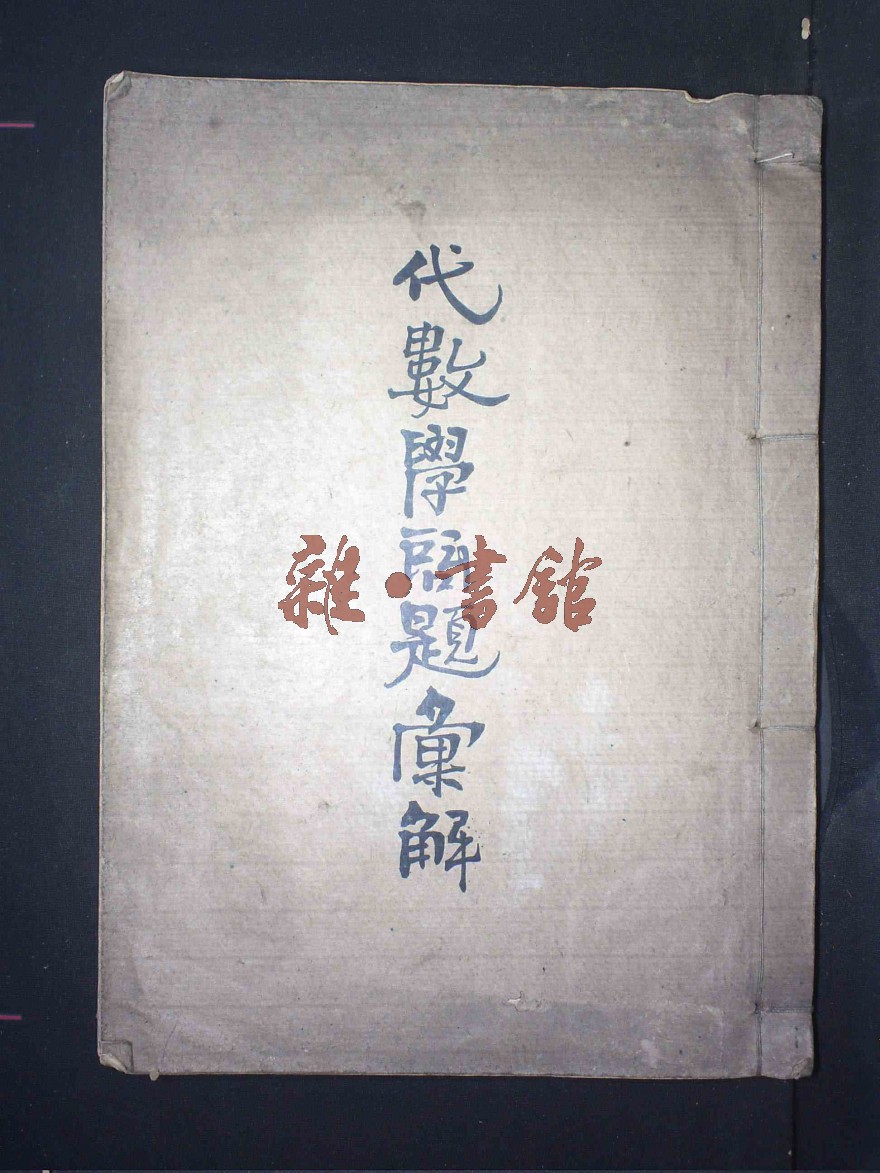 代數學問題彙解
雜·書館